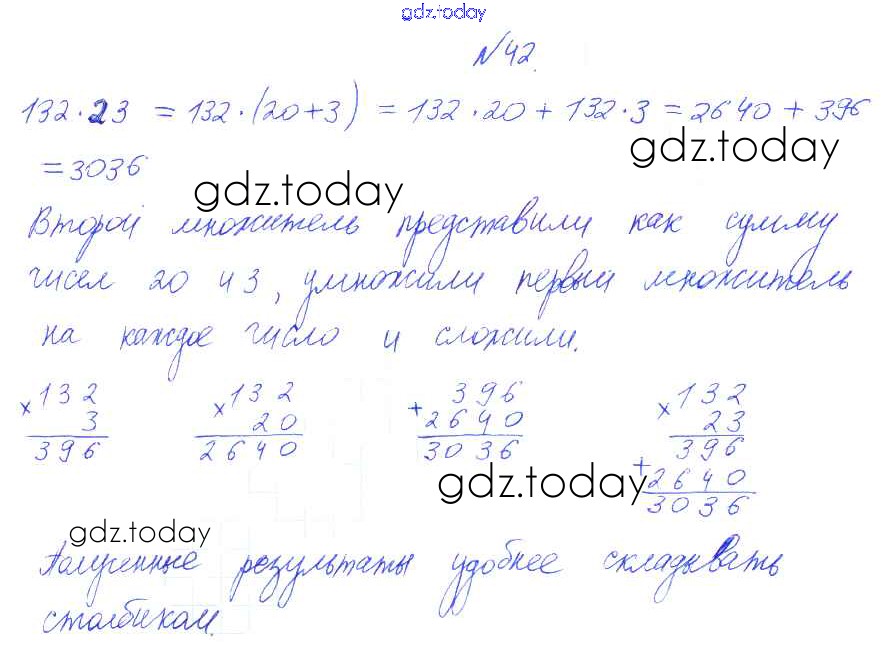 gdz.today
№42.
132·23 = 132·(20+3) = 132·20 + 132·3 = 2640 + 396
gdz.today
= 3036
gdz.today
Второй множитель представили как сумму
чисел 20 и 3, умножили первый множитель
на каждое число и сложили.
×132
3
396
×132
20
2640
+396
2640
3036
×132
23
396
+2640
3036
gdz.today
gdz.today
Полученные результаты удобнее складывать
столбиком.